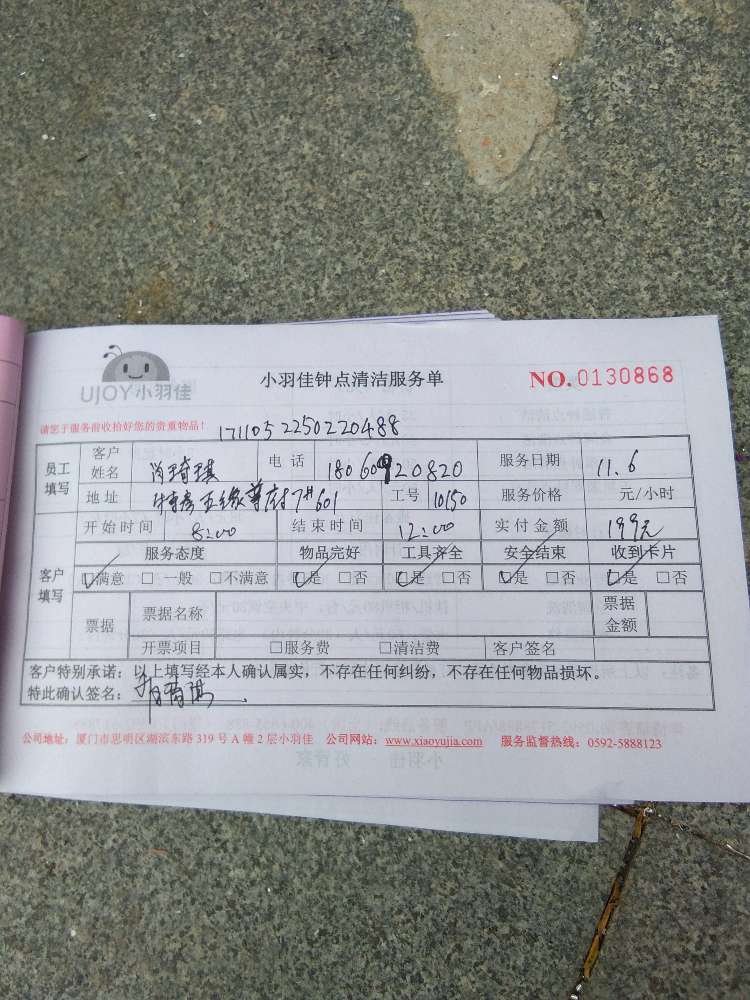 UJOY小羽佳
小羽佳钟点清洁服务单
NO.0130868
请您于服务前收拾好您的贵重物品！ 171105225022048​8
员工填写 客户姓名 肖琦琪 电话 18060920820 服务日期 11.6
地址 五缘尊府7#601 工号 10150 服务价格 元/小时
客户填写 开始时间 8:00 结束时间 12:00 实付金额 199元
服务态度 物品完好 工具齐全 安全结束 收到卡片
☑满意 □一般 □不满意 ☑是 □否 ☑是 □否 ☑是 □否 ☑是 □否
票据 票据名称 票据金额
开票项目 □服务费 □清洁费 客户签名
客户特别承诺：以上填写经本人确认属实，不存在任何纠纷，不存在任何物品损坏。
特此确认签名：
公司地址：厦门市思明区湖滨东路 319 号 A 幢 2 层小羽佳 公司网站：www.xiaoyujia.com 服务监督热线：0592-5888123